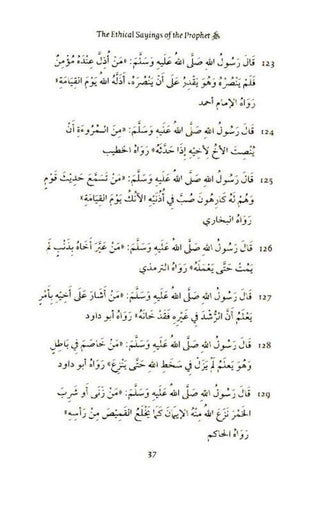 The Ethical Sayings of the Prophet ﷺ
123 قَالَ رَسُولُ اللهِ صَلَّى اللهُ عَلَيهِ وَسَلَّمَ: «مَنْ أُذِلَّ عِنْدَهُ مُؤْمِنٌ
فَلَمْ يَنْصُرْهُ وَهوَ يَقْدِرُ عَلَى أَنْ يَنْصُرَهُ، أَذَلَّهُ اللهُ يَوْمَ القِيَامَةِ»
رَوَاهُ الإمام أحمد
124 قَالَ رَسُولُ اللهِ صَلَّى اللهُ عَلَيهِ وَسَلَّمَ: «مِنَ المُرُوءَةِ أَنْ
يُنْصِتَ الأَخُ لِأَخِيْهِ إِذَا حَدَّثَهُ» رَوَاهُ الخطيب
125 قَالَ رَسُولُ اللهِ صَلَّى اللهُ عَلَيهِ وَسَلَّمَ: «مَنْ تَسَمَّعَ حَدِيْثَ قَوْمٍ
وَهُمْ لَهُ كَارِهُونَ صُبَّ فِي أُذُنَيْهِ الآنُكُ يَوْمَ القِيَامَةِ»
رَوَاهُ البخاري
126 قَالَ رَسُولُ اللهِ صَلَّى اللهُ عَلَيهِ وَسَلَّمَ: «مَنْ عَيَّرَ أَخَاهُ بِذَنْبٍ لَمْ
يَمُتْ حَتَّى يَعْمَلَهُ» رَوَاهُ الترمذي
127 قَالَ رَسُولُ اللهِ صَلَّى اللهُ عَلَيهِ وَسَلَّمَ: «مَنْ أَشَارَ عَلَى أَخِيْهِ بِأَمْرٍ
يَعْلَمُ أَنَّ الرُّشْدَ فِي غَيْرِهِ فَقَدْ خَانَهُ» رَوَاهُ أبو داود
128 قَالَ رَسُولُ اللهِ صَلَّى اللهُ عَلَيهِ وَسَلَّمَ: «مَنْ خَاصَمَ فِي بَاطِلٍ
وَهوَ يَعلَمُهُ لَمْ يَزَلْ فِي سَخَطِ اللهِ حَتَّى يَنْزِعَ» رَوَاهُ أبو داود
129 قَالَ رَسُولُ اللهِ صَلَّى اللهُ عَلَيهِ وَسَلَّمَ: «مَنْ زَنَى أَو شَرِبَ
الخَمْرَ نَزَعَ اللهُ مِنْهُ الإِيمَانَ كَمَا يَخْلَعُ القَمِيْصَ مِنْ رَأسِهِ»
رَوَاهُ الحاكم
37